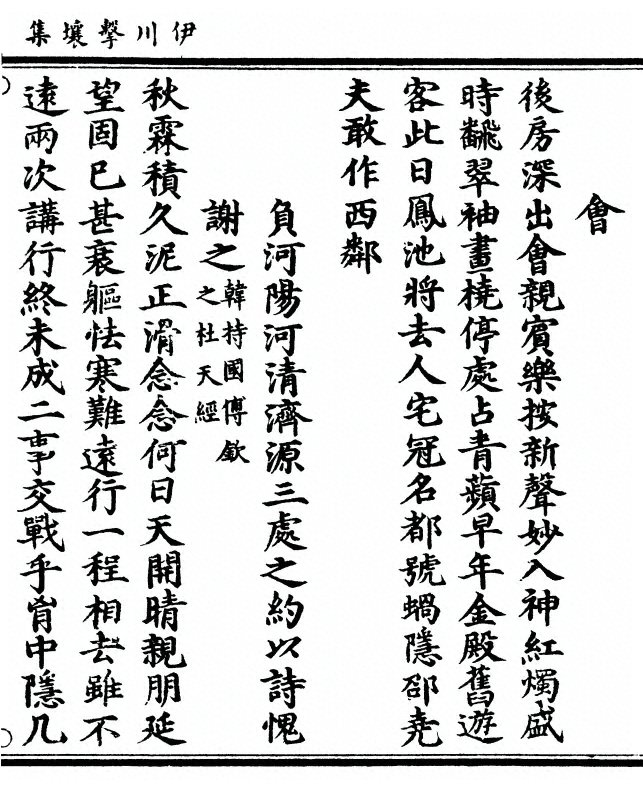 伊川擊壤集
會
後房深出會親賓樂按新聲妙入神紅燭盛
時翻翠袖畫橈停處占青蘋早年金殿舊遊
客此日鳳池將去人宅冠名都號蝸隱邵堯
夫敢作西鄰
負河陽河清濟源三處之約以詩愧
謝之韓持國傅欽之杜天經
秋霖積久泥正滑念念何日天開晴親朋延
望固已甚衰軀怯寒難遠行一程相去雖不
遠兩次講行終未成二事交戰乎胷中隱几